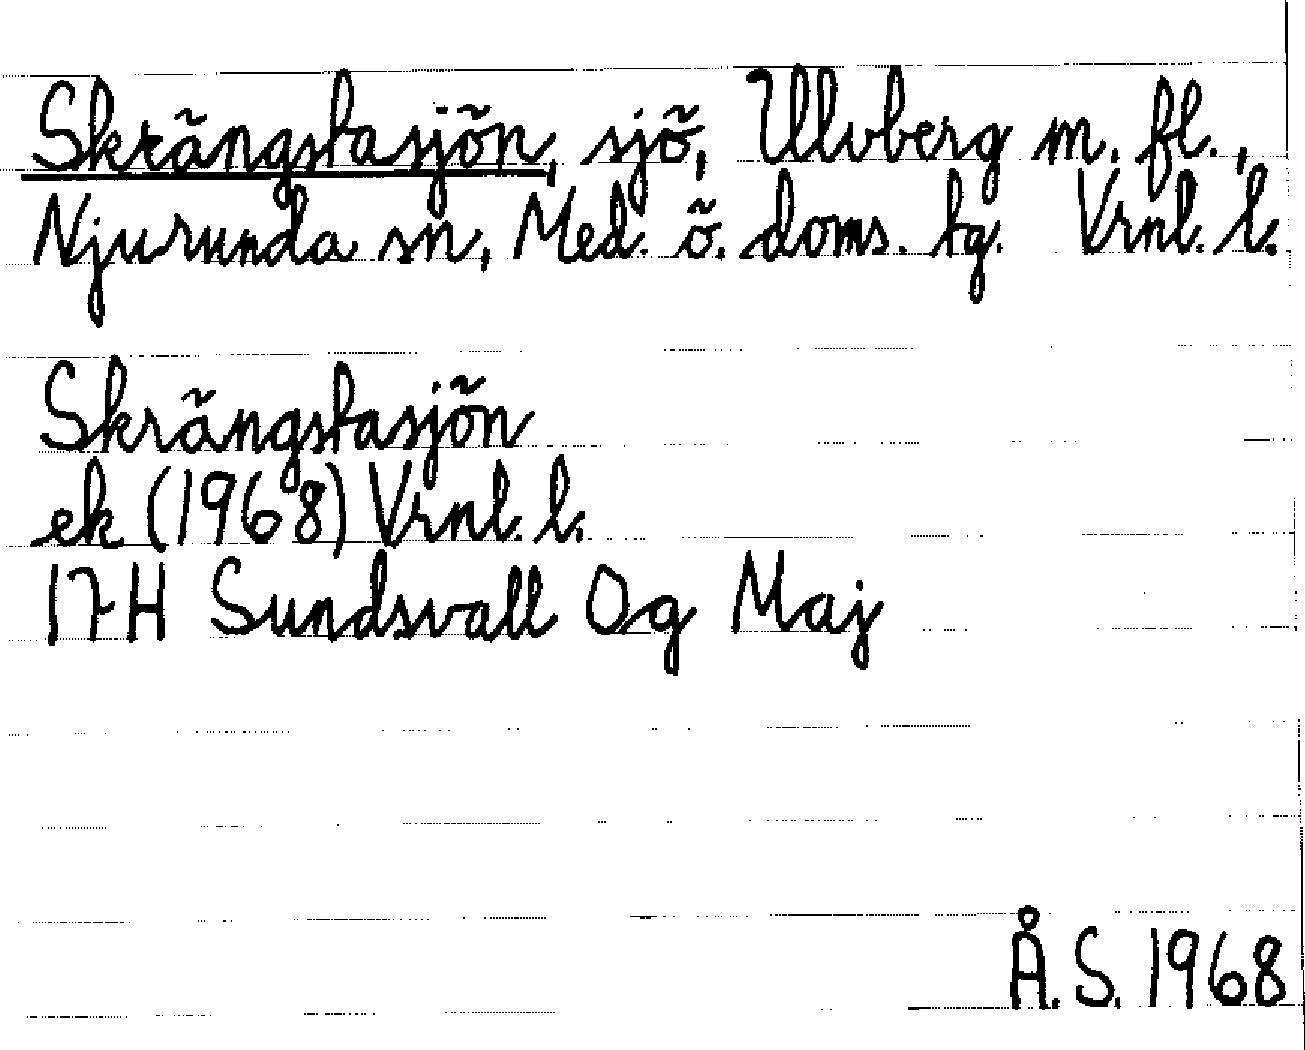 Skrängstasjön, sjö, Ulvberg m. fl.,
Njurunda sn, Med. ö. doms. tg. Vrnl. l.
Skrängstasjön
ek (1968) Vrnl. l.
17H Sundsvall Og Maj
Å. S. 1968